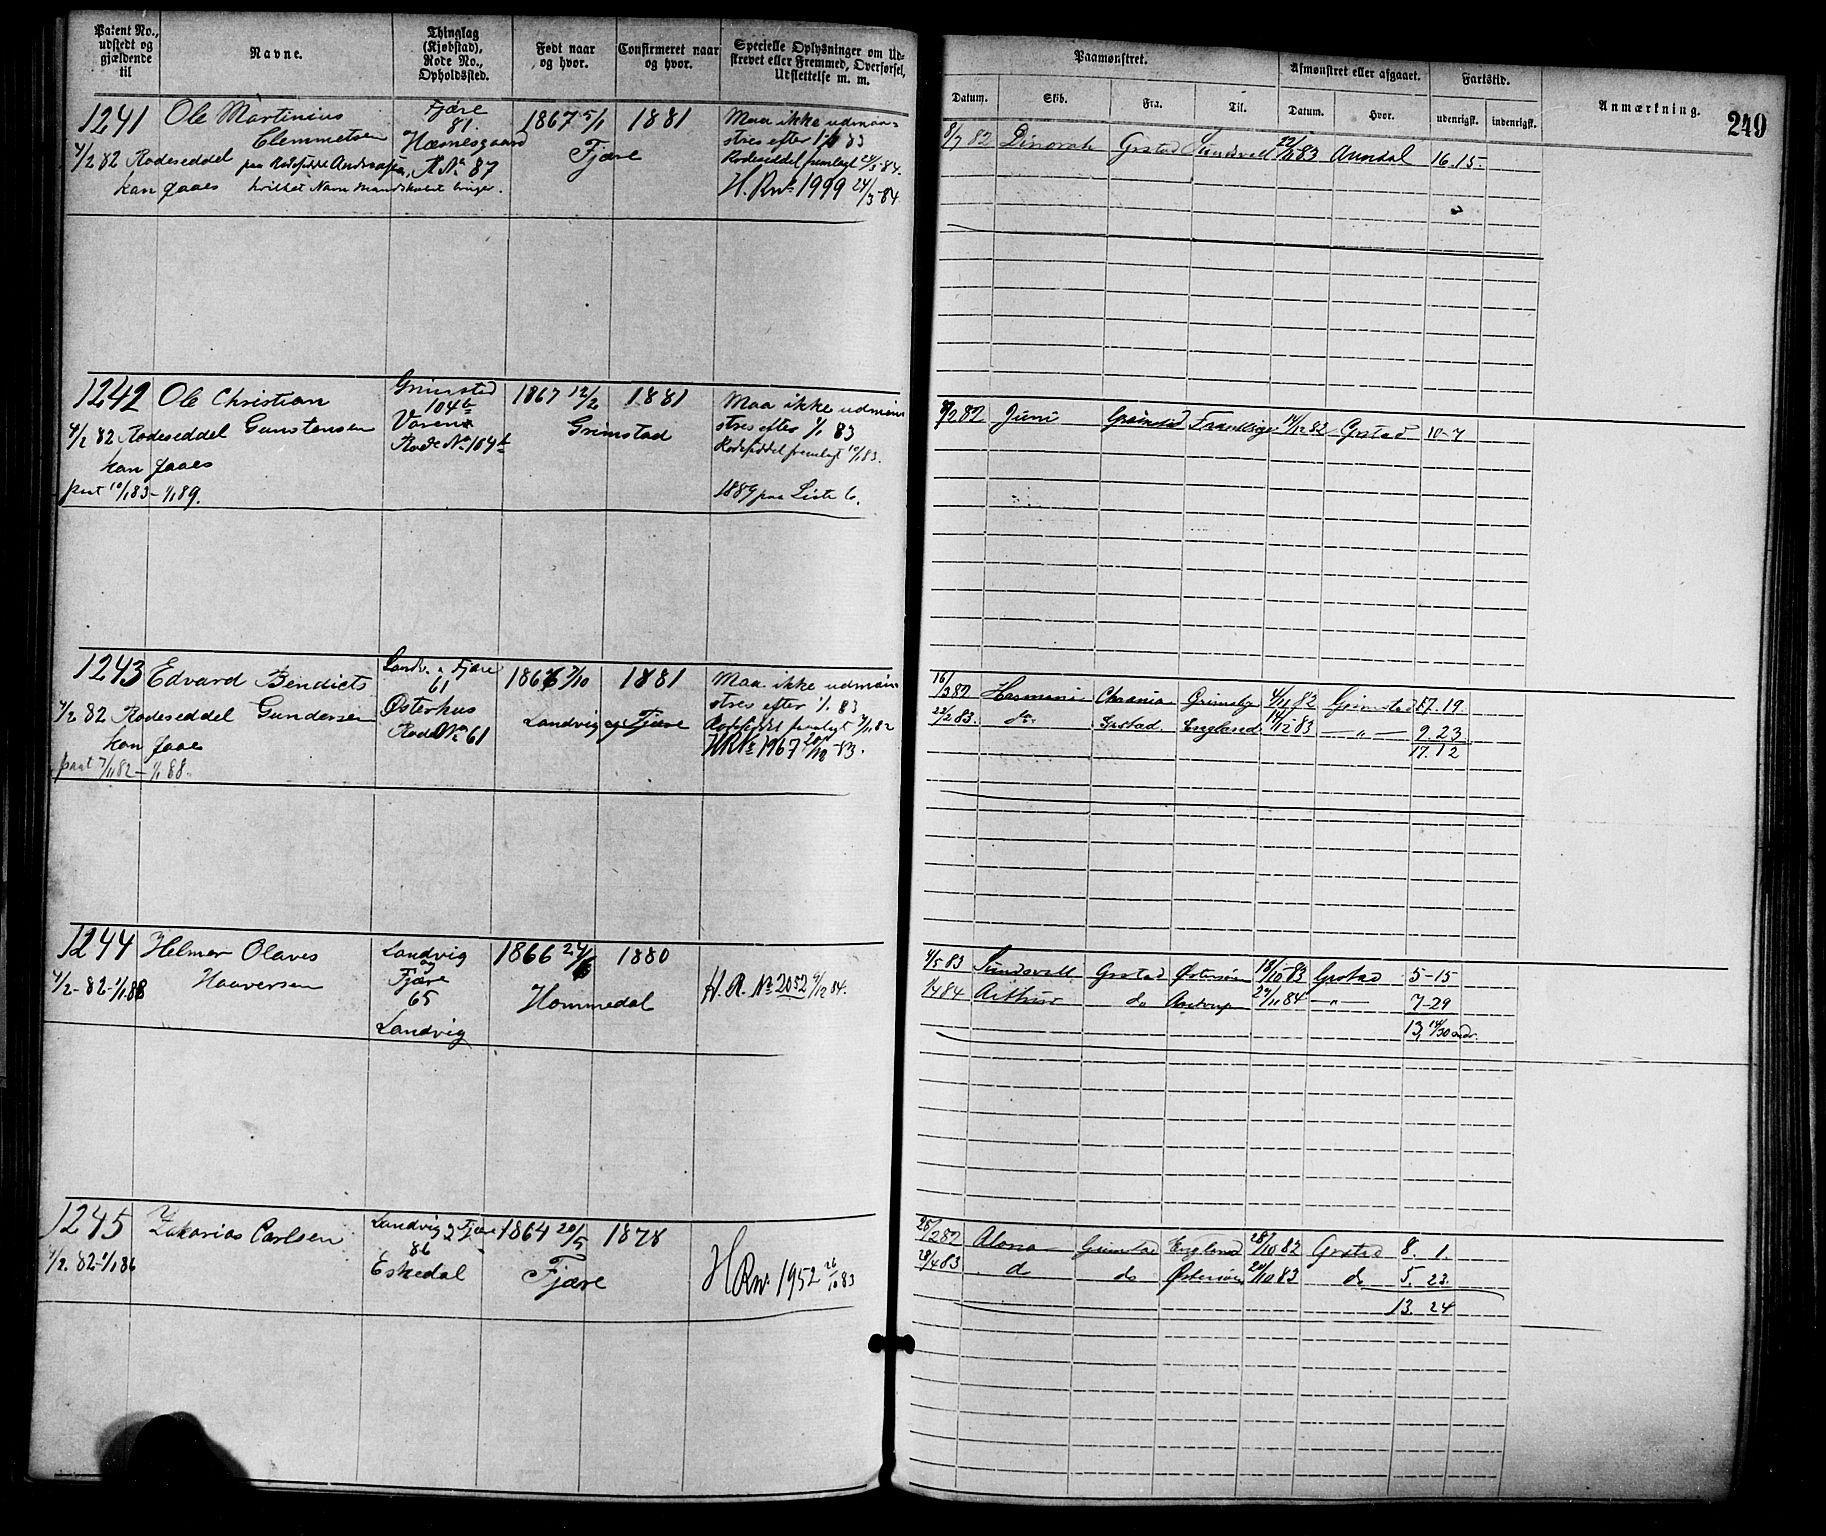 Patent No., udstedt og gjældende til
Navne.
Thinglag (Kjøbstad), Rode No., Opholdssted.
Født naar og hvor.
Confirmeret naar og hvor.
Specielle Oplysninger om Udskrevet eller Fremmed, Overførsel, Udslettelse m. m.
Paamønstret.
Datum.
Skib.
Fra.
Til.
Afmønstret eller afgaaet.
Datum.
Hvor.
Fartstid.
udenrigsk.
indenrigsk.
Anmærkning.
249
1241 Ole Martinius
Clemmetsen
4/2 82 Rodeseddel
kan gaaes hvilket Navn Mandskabet bruger.
Fjære
81.
Hæmnesgaard
R No 87
1867 5/1 1881
Fjære
Maa ikke udmøn=
stres efter 1/1 83
Rodeseddel fremlagt 24/3-84.
H. R No 1999 24/3-84
8/7 82 Grstad Sundsvall 22/11 83 Arendal 16.15.
1242 Ole Christian
4/2 82 Rodeseddel Gunstensen
kan gaaes
pat 10/1 83 - 1/1 89.
Grimstad
104b
Rode No 104b
1867 12/2 1881
Grimstad
Maa ikke udmøn
stres efter 1/1 83
Rodeseddel fremlagt 10/1 83.
1889 paa Liste 6.
8/2 82 Juni Grimstad 14/12 82 Grstad 10-7
1243 Edvard Bendicts
4/2 82 Rodeseddel Gundersen
kan gaaes
pat 7/11 82 - 1/1 88.
Landv. & Fjære
61
Østerhus
Rode No 61
1866 7/10 1881
Landvig og Fjære
Maa ikke udmøn
stres efter 1/1 83
Rodeseddel fremlagt 7/11 82
H R No 1967 20/10-83.
16/3 82 Chrania Grimsby 4/11 82 Grimstad 17.19
22/2 83. do. Grstad England 14/12 83 - " - 9.23
17.12
1244 Helmer Olaves
4/2-82-1/1 88 Haaversen
Landvig
og
Fjære
65
Landvig
1866 24/6 1880
Hommedal
H. R. No 2052 9/12 84.
4/5 83 Sundsvall Grstad Østersøn 18/10 83 Grstad 5-15
1/4 84 Arthur do 29/11 84 - " - 7-29
13, 14/30 mdr.
1245 Zakarias Carlsen
4/2. 82-1/1 86
Landvig & Fjære
86
Eskedal
1864 20/5 1878
Fjære
H R No 1952 26/10 83
25/2 82 Alona Grimstad England 28/10 82 Grstad 8. 1.
28/4 83 d do Østersøen 20/10 83 do 5. 23.
13. 24